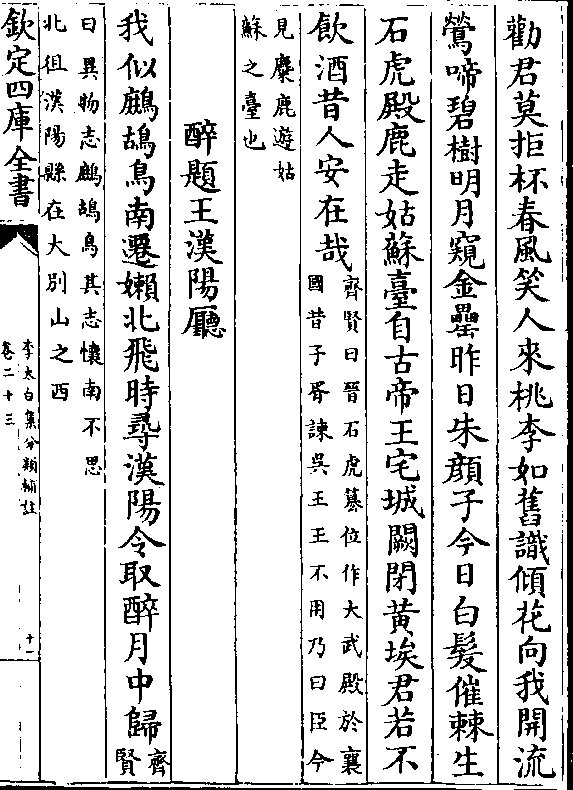 勸君莫拒杯春風笑人來桃李如舊識傾花向我開流
鶯啼碧樹明月窺金罍昨日朱顔子今日白髮催棘生
石虎殿鹿走姑蘇臺自古帝王宅城闕閉黄埃君若不
飲酒昔人安在哉
齊賢曰晉石虎簒位作大武殿於襄
國昔子胥諫吳王王不用乃曰臣今
見麋鹿遊姑
蘇之臺也
醉題王漢陽廳
我似鷓鴣鳥南遷嬾北飛時尋漢陽令取醉月中歸
齊
賢
曰異物志鷓鴣鳥其志懷南不思
北徂漢陽縣在大别山之西
欽定四庫全書
李太白集分類補註
卷二十三
十一